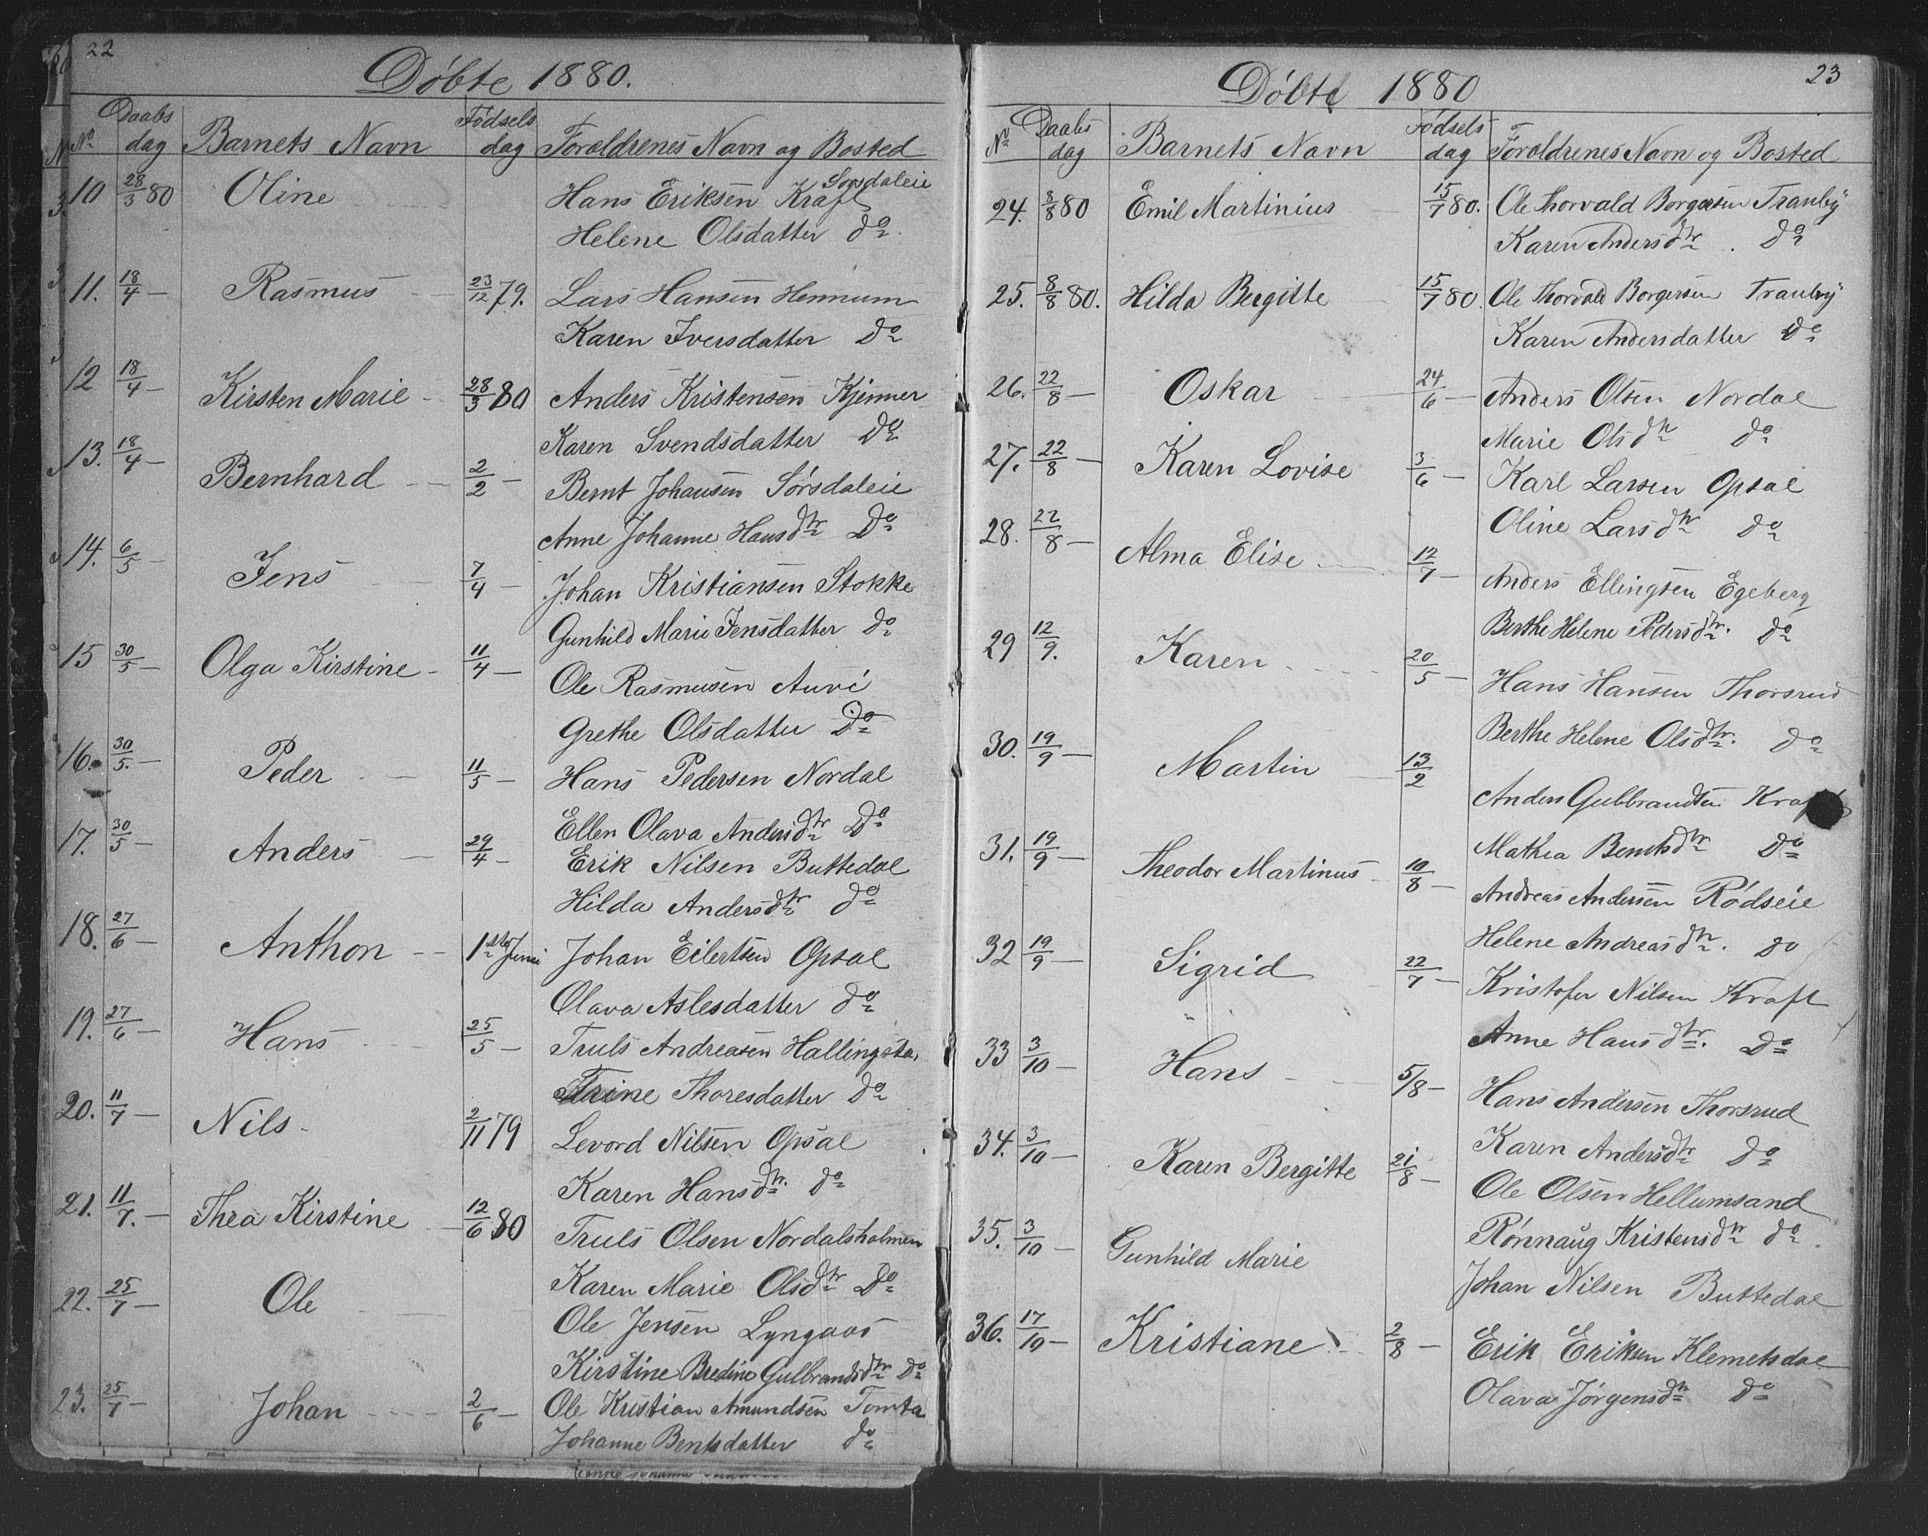 22
Døbte 1880.
No Daabs dag Barnets Navn Fødsels dag Forældrenes Navn og Bosted
10 28/3 80 Oline Hans Eriksen Kraft Sørsdaleie
Helene Olsdatter Do
11. 18/4 — Rasmus 23/12 79. Lars Hansen Hennum
Karen Iversdatter Do
12 18/4 — Kirsten Marie 28/3 80 Anders Kristensen Kjenner
Karen Svendsdatter Do
13. 18/4 — Bernhard 2/2 — Bernt Johansen Sørsdaleie
Anne Johanne Hansdtr Do
14. 6/5 — Jens 7/4 — Johan Kristiansen Stokke
Gunhild Marie Jensdatter Do
15 30/5 — Olga Kirstine 11/4 — Ole Rasmusen Auvi
Grethe Olsdatter Do
16. 30/5. — Peder 11/5 — Hans Pedersen Nordal
Ellen Olava Andersdtr Do
17. 30/5 — Anders 29/4 — Erik Nilsen Buttedal
Hilda Andersdtr Do
18. 27/6 — Anthon 1ste Juni Johan Eilertsen Opsal
Olava Aslesdatter Do
19. 27/6 — Hans 25/5 — Truls Andreasen Hallingsta
Trine Thoresdatter Do
20. 11/7 — Nils 2/11 79 Levord Nilsen Opsal
Karen Hansdtr. Do
21. 11/7. — Thea Kirstine 12/6 80 Truls Olsen Nordalsholmen
Karen Marie Olsdtr Do
22. 25/7 — Ole Ole Jensen Lyngaas
Kirstine Bredine Gulbrandsdtr Do
23. 25/7 — Johan 2/6 — Ole Kristian Amundsen Tomta
Johanne Bentsdatter Do
23
Døbte 1880
No Daabs dag Barnets Navn Fødsels dag Forældrenes Navn og Bosted
24. 8/8 80 Emil Martinius 15/7 80. Ole Thorvald Borgersen Tranby
Karen Andersdtr. Do
25. 8/8 80. Hilda Bergitte 15/7 80. Ole Thorvald Borgersen Tranby
Karen Andersdatter Do
26. 22/8 — Oskar 24/6 — Anders Olsen Nordal
Marie Olsdtr Do
27. 22/8 — Karen Lovise 3/6 — Karl Larsen Opsal
Oline Larsdtr Do
28. 22/8 — Alma Elise 12/7 — Anders Ellingsen Egeberg
Berthe Helene Pedersdtr. Do
29 12/9. Karen 20/5 — Hans Hansen Thorsrud
Berthe Helene Olsdtr. Do
30. 19/9 — Martin 13/2 Anders Gulbrandsen Kraft
Mathea Bentsdtr Do
31. 19/9 — Theodor Martinus 10/8 — Andreas Andersen Rødseie
Helene Andreasdtr. Do
32 19/9 — Sigrid 22/7 — Kristofer Nilsen Kraft
Anne Hansdtr. Do
33 3/10 — Hans 5/8 — Hans Andersen Thorsrud
Karen Andersdtr Do
34. 3/10 — Karen Bergitte 21/8 — Ole Olsen Hellumsand
Rønnaug Kristensdtr Do
35. 3/10 — Gunhild Marie Johan Nilsen Buttedal
36. 17/10 — Kristiane 2/8 — Erik Eriksen Klemetsdal
Olava Jørgensdtr Do